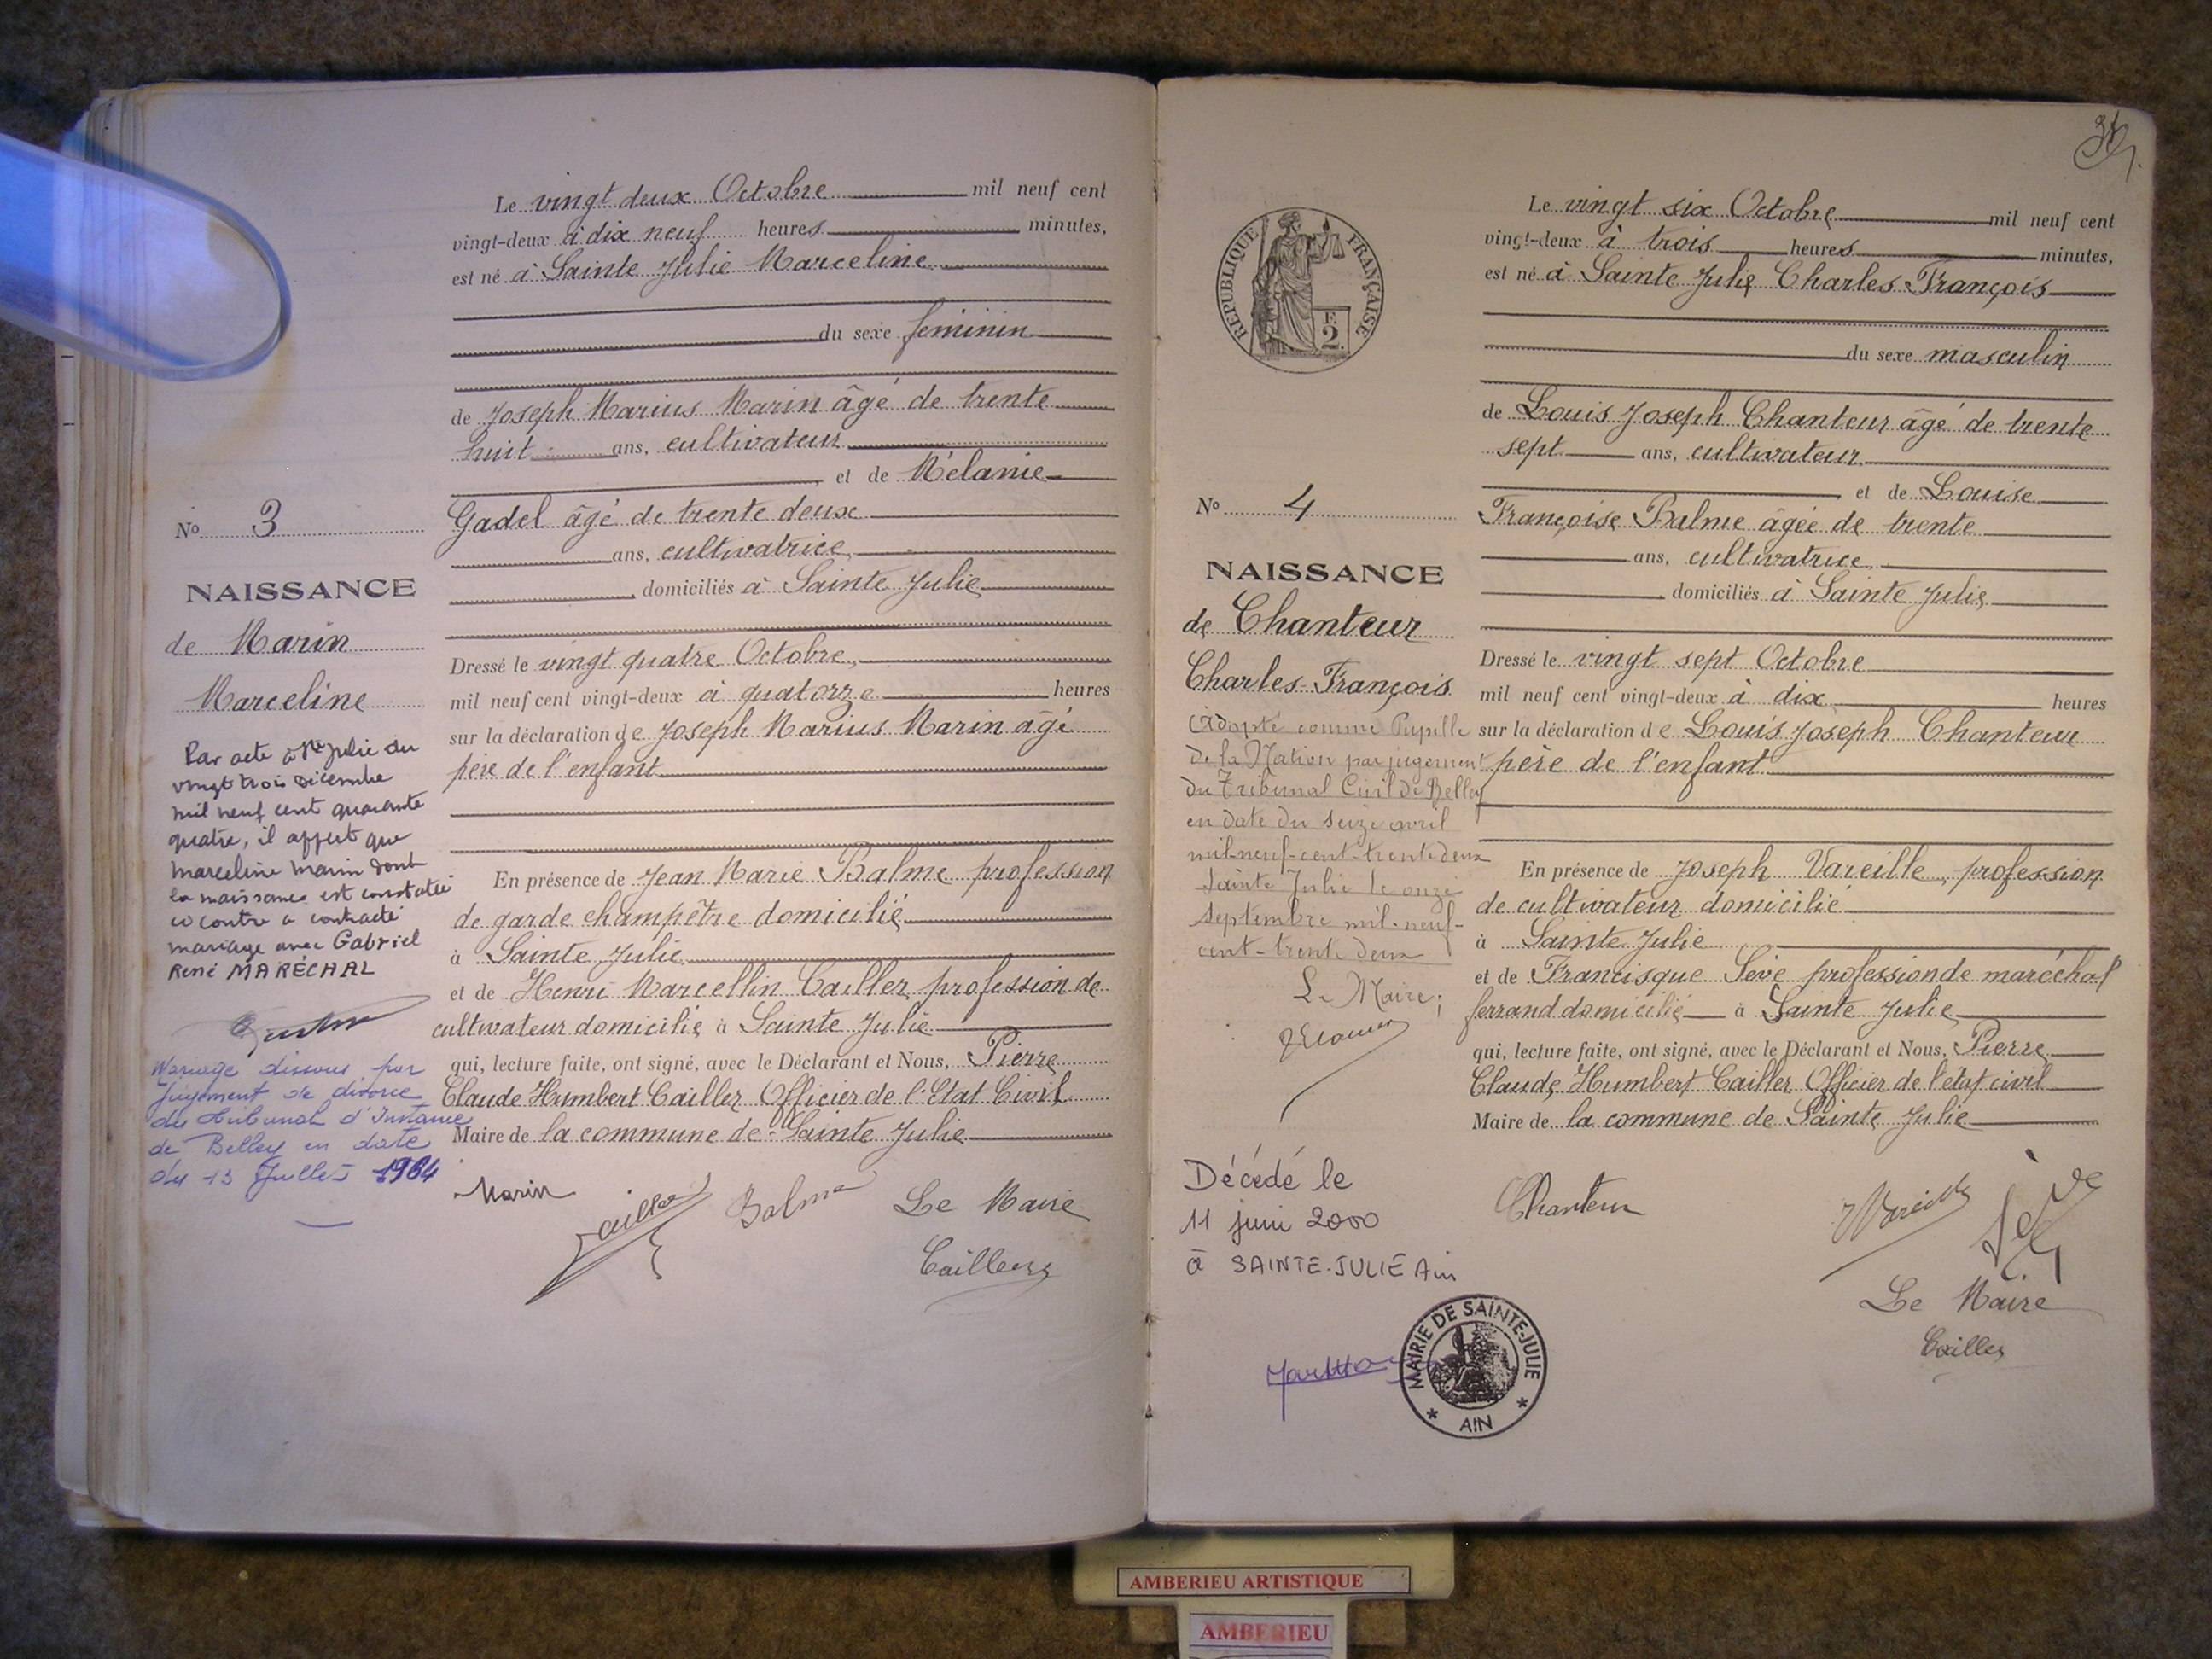 Le vingt deux Octobre mil neuf cent
vingt-deux à dix neuf heures minutes,
est né à Sainte Julie Marceline
du sexe feminin
de Joseph Marius Marin âgé de trente
huit ans, cultivateur
et de Mélanie
Gadel âgé de trente deux
ans, cultivatrice,
domiciliés à Sainte Julie
Dressé le vingt quatre Octobre,
mil neuf cent vingt-deux à quatorze heures
sur la déclaration de Joseph Marius Marin âgé
père de l'enfant
En présence de Jean Marie Balme profession
de garde champêtre domicilié
à Sainte Julie
et de Henri Marcellin Cailler, profession de
cultivateur domicilié à Sainte Julie
qui, lecture faite, ont signé, avec le Déclarant et Nous, Pierre
Claude Humbert Cailler Officier de l'Etat Civil
Maire de la commune de Sainte Julie
Marin
Cailler
Balme
Le Maire
Cailler
No 3
NAISSANCE
de Marin
Marceline
Par acte à Ste Julie du
vingt trois Décembre
mil neuf cent quarante
quatre, il appert que
Marceline Marin dont
la naissance est constatée
ci contre a contracté
mariage avec Gabriel
René MARÉCHAL
Mariage dissous par
jugement de divorce
du tribunal d'Instance
de Belley en date
du 13 Juillet 1964
Le vingt six Octobre mil neuf cent
vingt-deux à trois heures minutes,
est né à Sainte Julie Charles François
du sexe masculin
de Louis Joseph Chanteur âgé de trente
sept ans, cultivateur,
et de Louise
Françoise Balme âgée de trente
ans, cultivatrice,
domiciliés à Sainte Julie
Dressé le vingt sept Octobre
mil neuf cent vingt-deux à dix heures
sur la déclaration de Louis Joseph Chanteur
père de l'enfant
En présence de Joseph Vareille, profession
de cultivateur domicilié
à Sainte Julie
et de Francisque Sève profession de maréchal
ferrand domicilié à Sainte Julie
qui, lecture faite, ont signé, avec le Déclarant et Nous, Pierre
Claude Humbert Cailler Officier de l'état civil
Maire de la commune de Sainte Julie
Chanteur
Vareille
Sève
Le Maire
Cailler
REPUBLIQUE FRANÇAISE
F.
2.
No 4
NAISSANCE
de Chanteur
Charles François
Adopté comme Pupille
de la Nation par jugement
du Tribunal Civil de Belley
en date du seize avril
mil-neuf-cent-trente deux
Sainte Julie le onze
septembre mil-neuf-
cent-trente deux
Le Maire;
Décédé le
11 juin 2000
à SAINTE-JULIE Ain
MAIRIE DE SAINTE-JULIE
* AIN *
AMBERIEU ARTISTIQUE
AMBERIEU